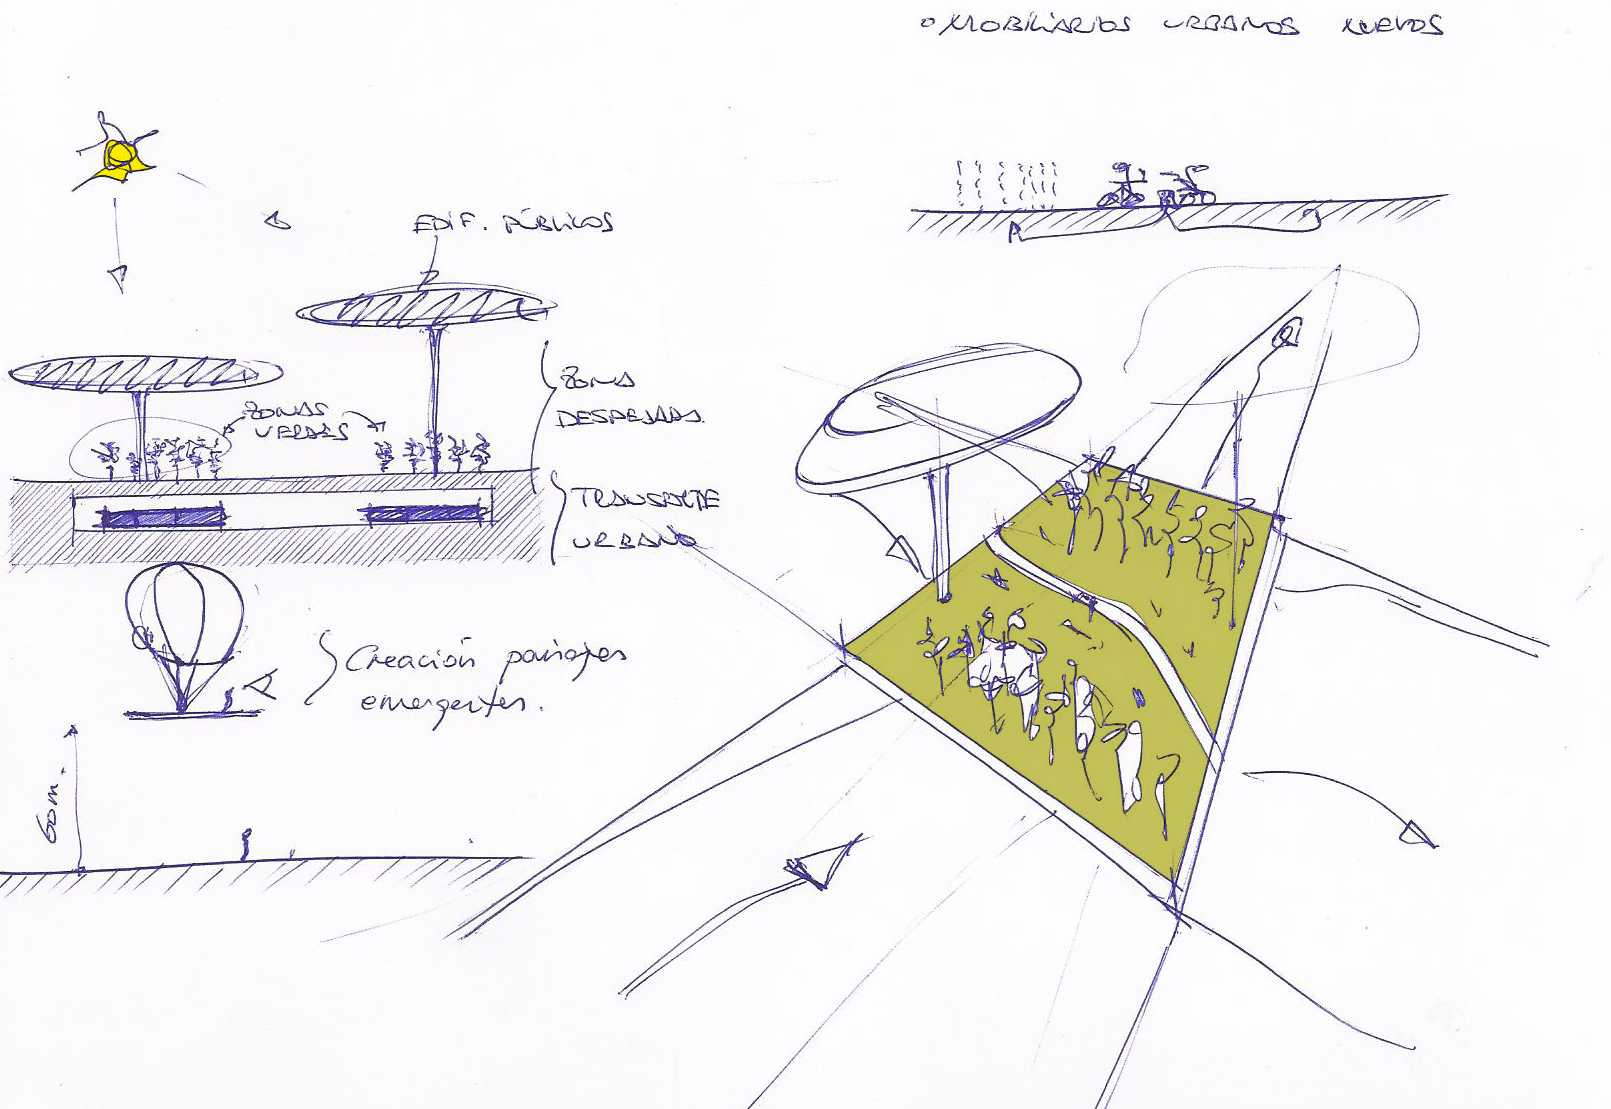 ° MOBILIARIOS URBANOS NUEVOS
EDIF. PÚBLICOS
ZONA
DESPEJADA
ZONAS
VERDES
TRANSPORTE
URBANO
Creación paisajes
emergentes.
60m.